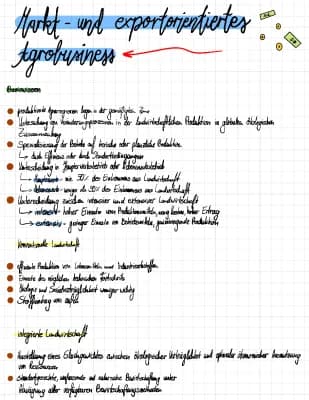 Markt - und exportorientiertes
Agrobusiness
produktivste Agrarregionen liegen in der gemäßigten Zone
Untersuchung von Veränderungsprozessen in der landwirtschaftlichen Produktion im globalen ökologischen
Zusammenhang
Spezialisierung der Betriebe auf tierische oder pflanzliche Produktion
↳ durch Effizienz oder durch Standortbedingungen
Unterscheidung in Haupterwerbsbetrieb oder Nebenerwerbsbetrieb
↳ haupterwerb - mind. 50% des Einkommens aus Landwirtschaft
↳ nebenerwerb - weniger als 50% des Einkommens aus Landwirtschaft
Unterscheidung zwischen intensiver und extensiver Landwirtschaft
↳ intensiv - hoher Einsatz von Produktionsmitteln, hoher Ertrag
↳ extensiv - geringer Einsatz von Betriebsmitteln, Produktion
konventionelle Landwirtschaft
effiziente Produktion von Lebensmitteln und Industrierohstoffen
Einsatz des möglichen technischen Fortschritts
Ökologie und Sozialverträglichkeit weniger wichtig
Stoffeintrag von außen
integrierte Landwirtschaft
Herstellung eines Gleichgewichtes zwischen ökologischer Verträglichkeit und optimaler ökonomischer Ausnutzung
von Ressourcen
standortgerechte, umfassende und Bewirtschaftung unter
Abwägung aller verfügbaren Bewirtschaftungsmethoden